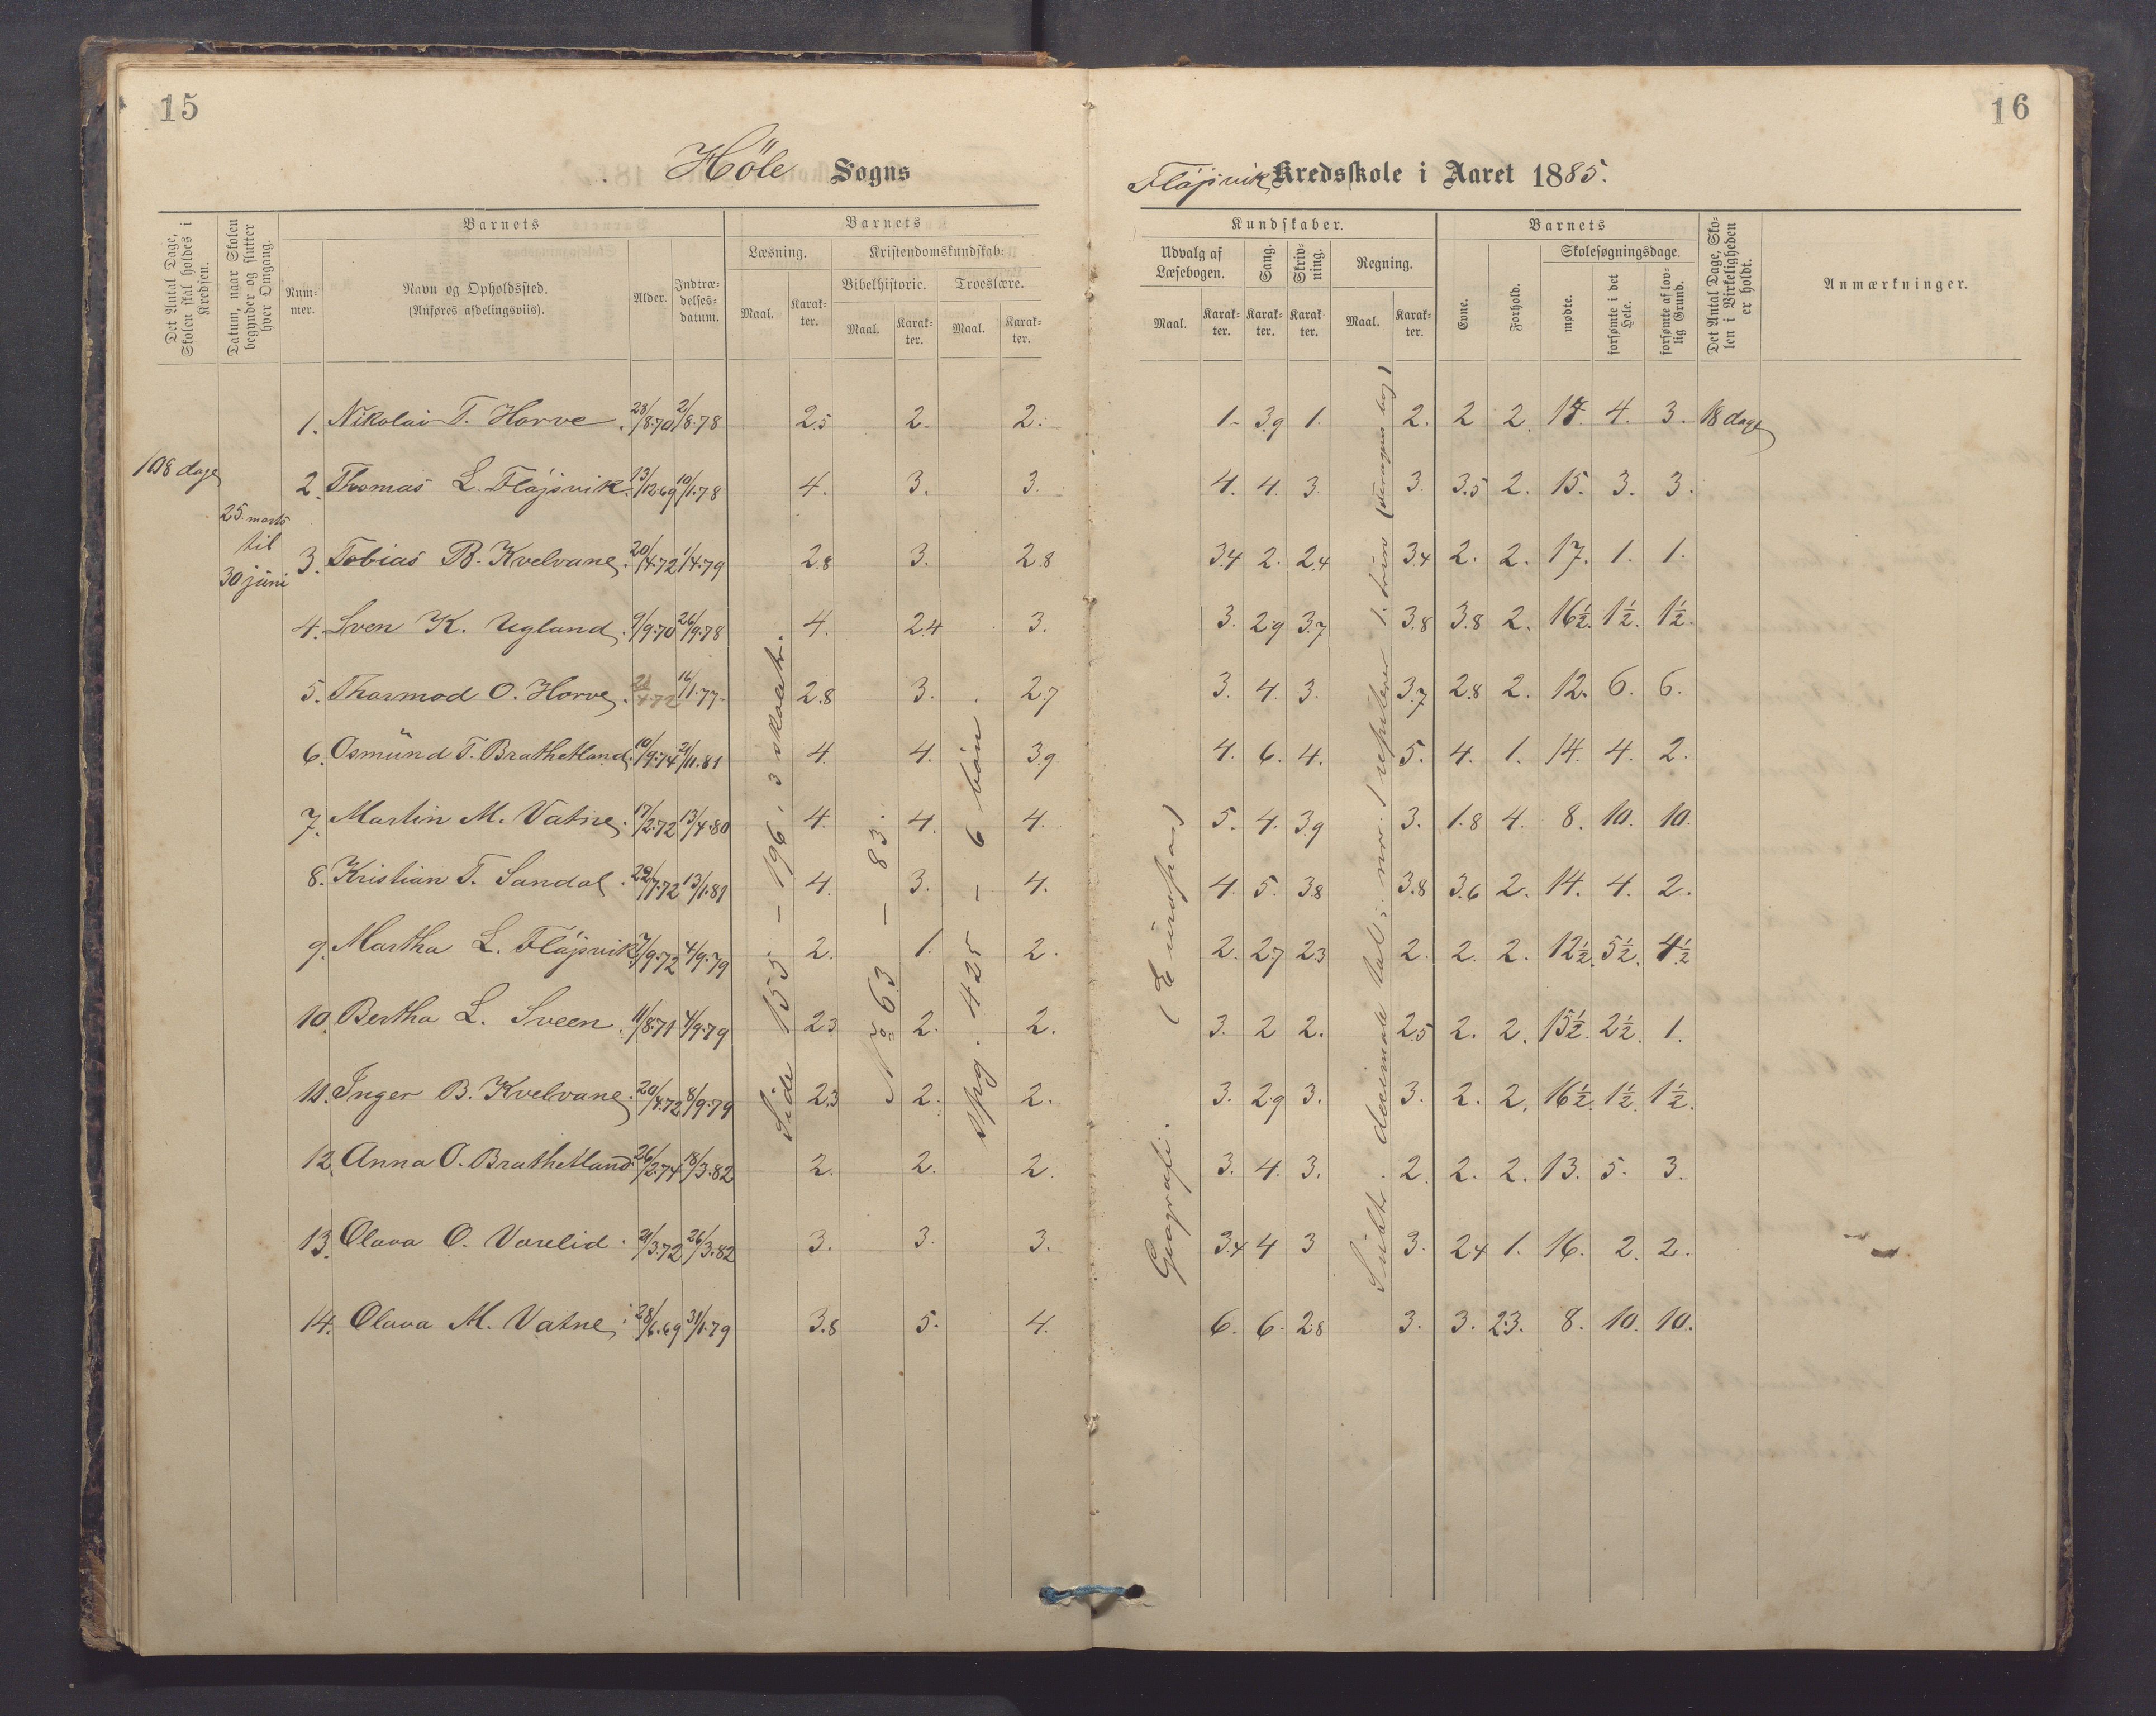 15
16
Höle Sogns
Fløjsvik Kredsskole i Aaret 1885.
Det Antal Dage, Skolen skal holdes i Kredsen.
Datum, naar Skolen begynder og slutter hver Omgang.
Barnets
Nummer.
Navn og Opholdssted.
(Anføres afdelingsviis).
Alder.
Indtrædelses-datum.
Barnets
Læsning.
Maal.
Karakter.
Kristendomskundskab:
Bibelhistorie.
Maal.
Karakter.
Troeslære.
Maal.
Karakter.
Kundskaber.
Udvalg af Læsebogen.
Maal.
Karakter.
Sang.
Karakter.
Skrivning.
Karakter.
Regning.
Maal.
Karakter.
Barnets
Evne.
Forhold.
Skolesøgningsdage.
mødte.
forsømte i det Hele.
forsømte af lovlig Grund.
Det Antal Dage, Skolen i Virkeligheden er holdt.
Anmærkninger.
108 dage
25. marts
til
30 juni
1. Nikolai T. Horve. 23/8.70 2/8.78 2.5 2. 2. 1. 3.9 1. 2. 2 2. 17. 4. 3. 18 dage
2. Thomas L. Fløjsvik. 13/12.69 10/1.78 4. 3. 3. 4. 4. 3. 3. 3.5 2. 15. 3. 3.
3. Tobias B. Kvelvane. 20/4.72 1/4.79 2.8 3. 2.8 3.4 2. 2.4 3.4 2. 2. 17. 1. 1.
4. Sven K. Ugland. 9/9.70 26/9.78 4. 2.4 3. 3. 2.9 3.7 3.8 3.8 2. 16½. 1½. 1½.
5. Thormod O. Horve. 21/4.72 16/1.77 2.8 3. 2.7 3. 4. 3. 3.7 2.8 2. 12. 6. 6.
6. Osmund T. Brathetland. 10/9.74 21/11.81 4. 4. 3.9 4. 6. 4. 5. 4. 1. 14. 4. 2.
7. Martin M. Vatne. 17/2.72 13/4.80 4. 4. 4. 5. 4. 3.9 3. 1.8 4. 8. 10. 10.
8. Kristian T. Sandal. 22/7.72 13/1.81 4. 3. 4. 4. 5. 3.8 3.8 3.6 2. 14. 4. 2.
9. Martha L. Fløjsvik. 7/9.72 4/9.79 2. 1. 2. 2. 2.7 2.3 2. 2. 2. 12½. 5½. 4½
10. Bertha L. Sveen. 11/8.71 4/9.79 2.3 2. 2. 3. 2 2. 2.5 2. 2. 15½. 2½. 1.
11. Inger B. Kvelvane. 20/4.72 8/9.79 2.3 2. 2. 3. 2.9 3. 3. 2. 2. 16½. 1½. 1½.
12. Anna O. Brathetland. 26/2.74 18/3.82 2. 2. 2. 3. 4. 3. 2. 2. 2. 13. 5. 3.
13. Olava O. Vorelid. 21/3.72 26/3.82 3. 3. 3. 3.4 4 3 3. 2.4 1. 16. 2. 2.
14. Olava M. Vatne. 28/6.69 31/1.79 3.8 5. 4. 6. 6. 2.8 3. 3. 2.3. 8. 10. 10.
Side 155 – 196, 3
No 63 – 83.
spg. 425 – 6 bön
Geografi. (Europa)
decimale tal;